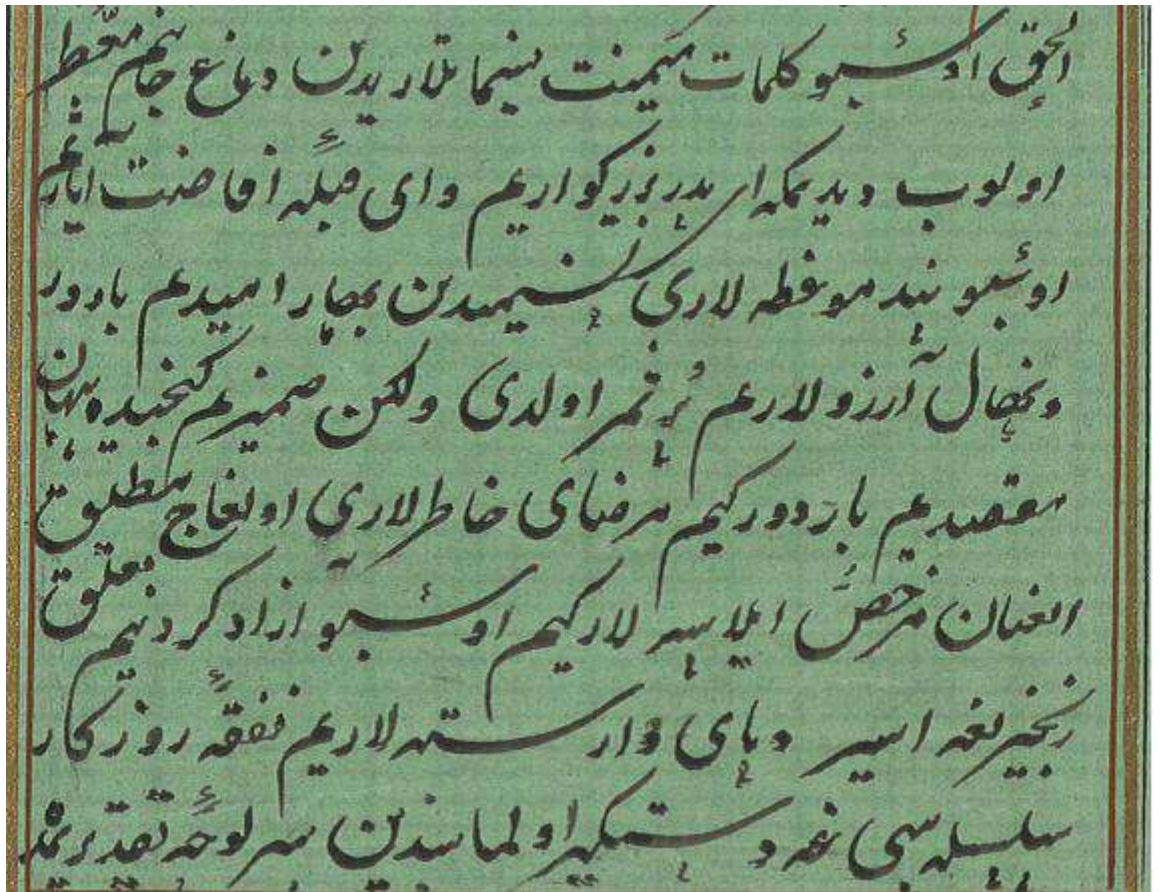 الحق اوشبو کلمات میمنت سماتلاریدین دماغ جانم معطر
اولوب دیدیمکه ای پدر بزرکواریم وای قبلهٔ افاضت آثاریم
اوشبو پند موعظه لاری نسیمیدین بهار امیدیم بارور
ونهال آرزولاریم پُرثمر اولدی ولکن ضمیریم کنجیده پنهان
مقصدیم باردور کیم مرضای خاطرلاری اولغاج مطلق
العنان مرخص ایلاسه لار کیم اوشبو ازاد کردنیم تعلق
زنجیریغه اسیر وپای وارسته لاریم نفقهٔ روزکار
سلسله سی غه دستکیر اولماسدین سرلوحهٔ تقدیریمده